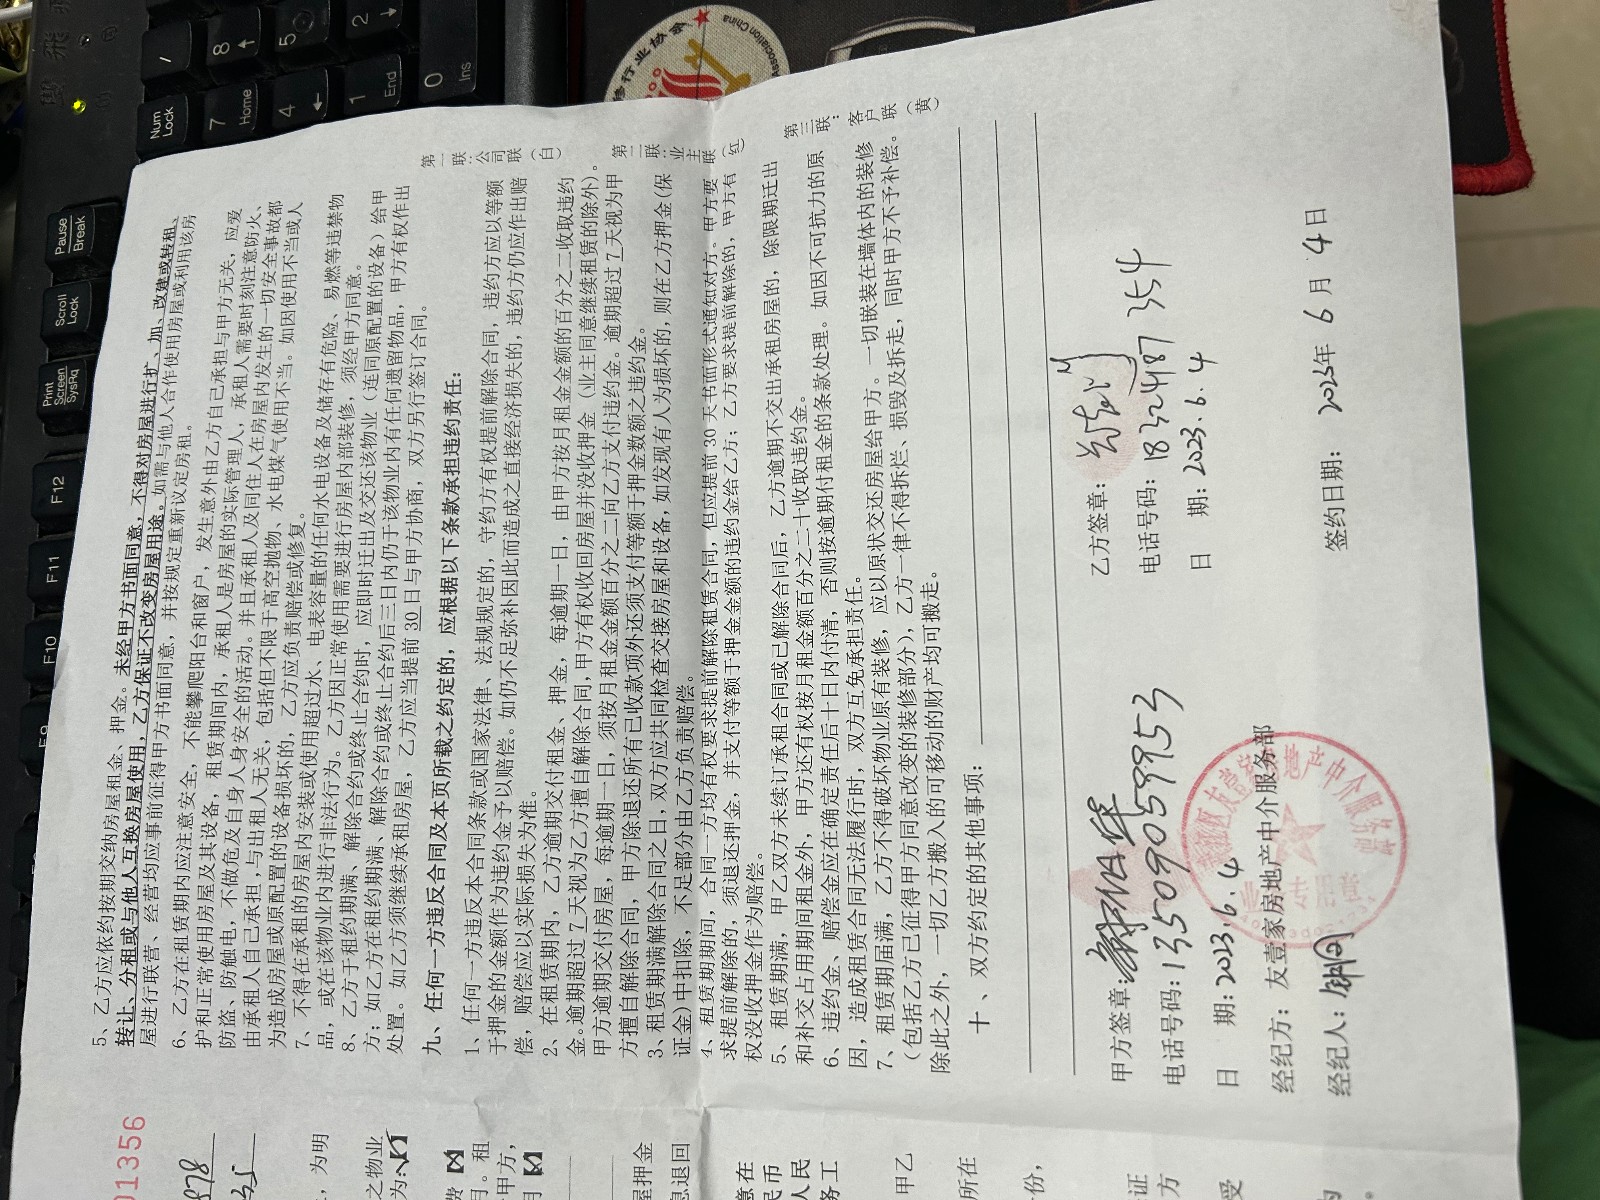 5、乙方应依约按期交纳房屋租金、押金。未经甲方书面同意，不得对房屋进行扩、加、改建或转租、
转让、分租或与他人互换房屋使用，乙方保证不改变房屋用途。如需与他人合作使用房屋或利用该房
屋进行联营、经营均应事前征得甲方书面同意，并按规定重新议定房租。
6、乙方在租赁期内应注意安全，不能攀爬阳台和窗户，发生意外由乙方自己承担与甲方无关，应爱
护和正常使用房屋及其设备，租赁期间内，承租人是房屋的实际管理人，承租人需要时刻注意防火、
防盗、防触电，不做危及自身人身安全的活动。并且承租人及同住人在房屋内发生的一切安全事故都
由承租人自己承担，与出租人无关，包括但不限于高空抛物、水电煤气使用不当。如因使用不当或人
为造成房屋或原配置的设备损坏的，乙方应负责赔偿或修复。
7、不得在承租的房屋内安装或使用超过水、电表容量的任何水电设备及储存有危险、易燃等违禁物
品，或在该物业内进行非法行为。乙方因正常使用需要进行房屋内部装修，须经甲方同意。
8、乙方于租约期满、解除合约或终止合约时，应即时迁出及交还该物业（连同原配置的设备）给甲
方；如乙方在租约期满、解除合约或终止合约后三日内仍于该物业内有任何遗留物品，甲方有权作出
处置。如乙方须继续承租房屋，乙方应当提前 30 日与甲方协商，双方另行签订合同。
九、任何一方违反合同及本页所载之约定的，应根据以下条款承担违约责任：
1、任何一方违反本合同条款或国家法律、法规规定的，守约方有权提前解除合同，违约方应以等额
于押金的金额作为违约金予以赔偿。如仍不足弥补因此而造成之直接经济损失的，违约方仍应作出赔
偿，赔偿应以实际损失为准。
2、在租赁期内，乙方逾期交付租金、押金，每逾期一日，由甲方按月租金金额的百分之二收取违约
金。逾期超过 7 天视为乙方擅自解除合同，甲方有权收回房屋并没收押金（业主同意继续租赁的除外）。
甲方逾期交付房屋，每逾期一日，须按月租金金额百分之二向乙方支付违约金。逾期超过 7 天视为甲
方擅自解除合同，甲方除退还所有已收款项外还须支付等额于押金数额之违约金。
3、租赁期满解除合同之日，双方应共同检查交接房屋和设备，如发现有人为损坏的，则在乙方押金（保
证金）中扣除，不足部分由乙方负责赔偿。
4、租赁期期间，合同一方均有权要求提前解除租赁合同，但应提前 30 天书面形式通知对方。甲方要
求提前解除的，须退还押金，并支付等额于押金金额的违约金给乙方；乙方要求提前解除的，甲方有
权没收押金作为赔偿。
5、租赁期满，甲乙双方未续订承租合同或已解除合同后，乙方逾期不交出承租房屋的，除限期迁出
和补交占用期间租金外，甲方还有权按月租金额百分之二十收取违约金。
6、违约金、赔偿金应在确定责任后十日内付清，否则按逾期付租金的条款处理。如因不可抗力的原
因，造成租赁合同无法履行时，双方互免承担责任。
7、租赁期届满，乙方不得破坏物业原有装修，应以原状交还房屋给甲方。一切嵌装在墙体内的装修
（包括乙方已征得甲方同意改变的装修部分），乙方一律不得拆烂、损毁及拆走，同时甲方不予补偿。
除此之外，一切乙方搬入的可移动的财产均可搬走。
十、双方约定的其他事项：
第一联：公司联（白）
第二联：业主联（红）
第三联：客户联（黄）
甲方签章：
电话号码：13509059953
日 期：2023.6.4
经纪方：友壹家房地产中介服务部
经纪人：
乙方签章：
电话号码：18322487354
日 期：2023.6.4
签约日期：2025年 6月 4日
地产中介服务部
专用章
01356
978
，为明
之物业
为：
费
月。租
甲方，
月
屋押金
息退回
意在
民币
人民
务工
甲乙
所在
份，
证
方
受
Num Lock
7 Home
8
/
4
5
1 End
2
0 Ins
Pause Break
Scroll Lock
Print Screen SysRq
F12
F11
F10
F9
修行业协会
Association China